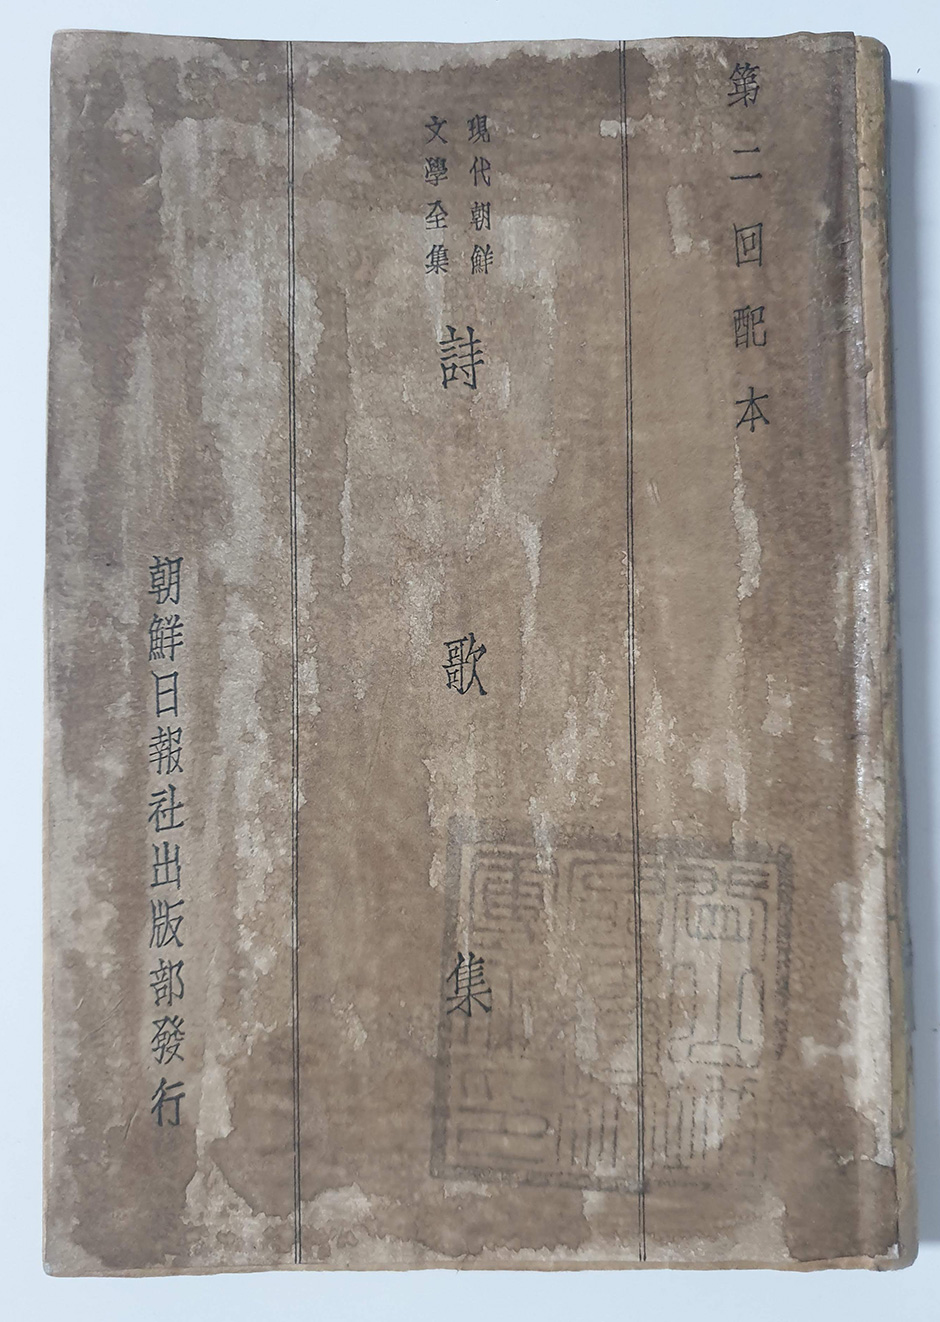 第二回配本
現代朝鮮
文學全集
詩歌集
朝鮮日報社出版部發行